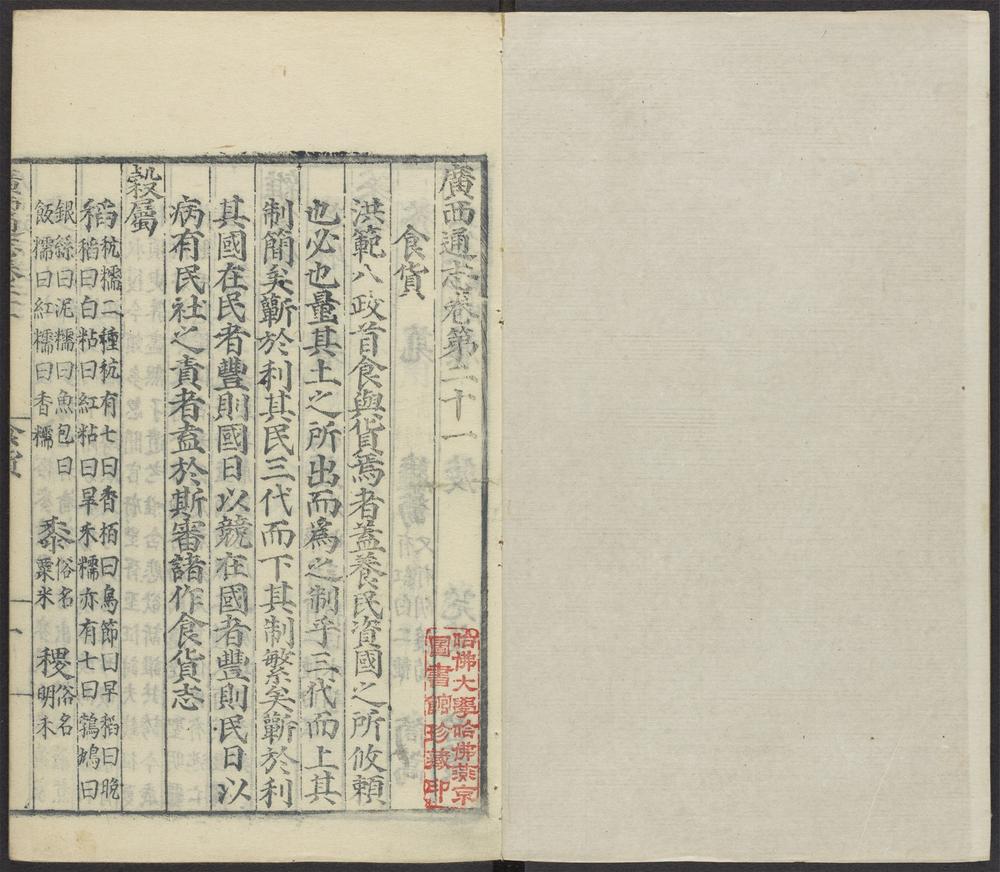 廣西通志卷第二十一
食貨
洪範八政首食與貨焉者蓋養民資國之所攸賴
也必也量其土之所出而為之制乎三代而上其
制簡矣蘄於利其民三代而下其制繁矣蘄於利
其國在民者豐則國日以競在國者豐則民日以
病有民社之責者盍於斯審諸作食貨志
穀屬
稻杭糯二種杭有七曰香栢曰鳥節曰早稻曰晚
稻曰白粘曰紅粘曰旱禾糯亦有七曰鶉鳩曰
銀絲曰泥糯曰魚包曰
飯糯曰紅糯曰香糯
黍俗名
粟米
稷俗名
明禾
食貨
一
哈佛大學哈佛燕京
圖書館珍藏印